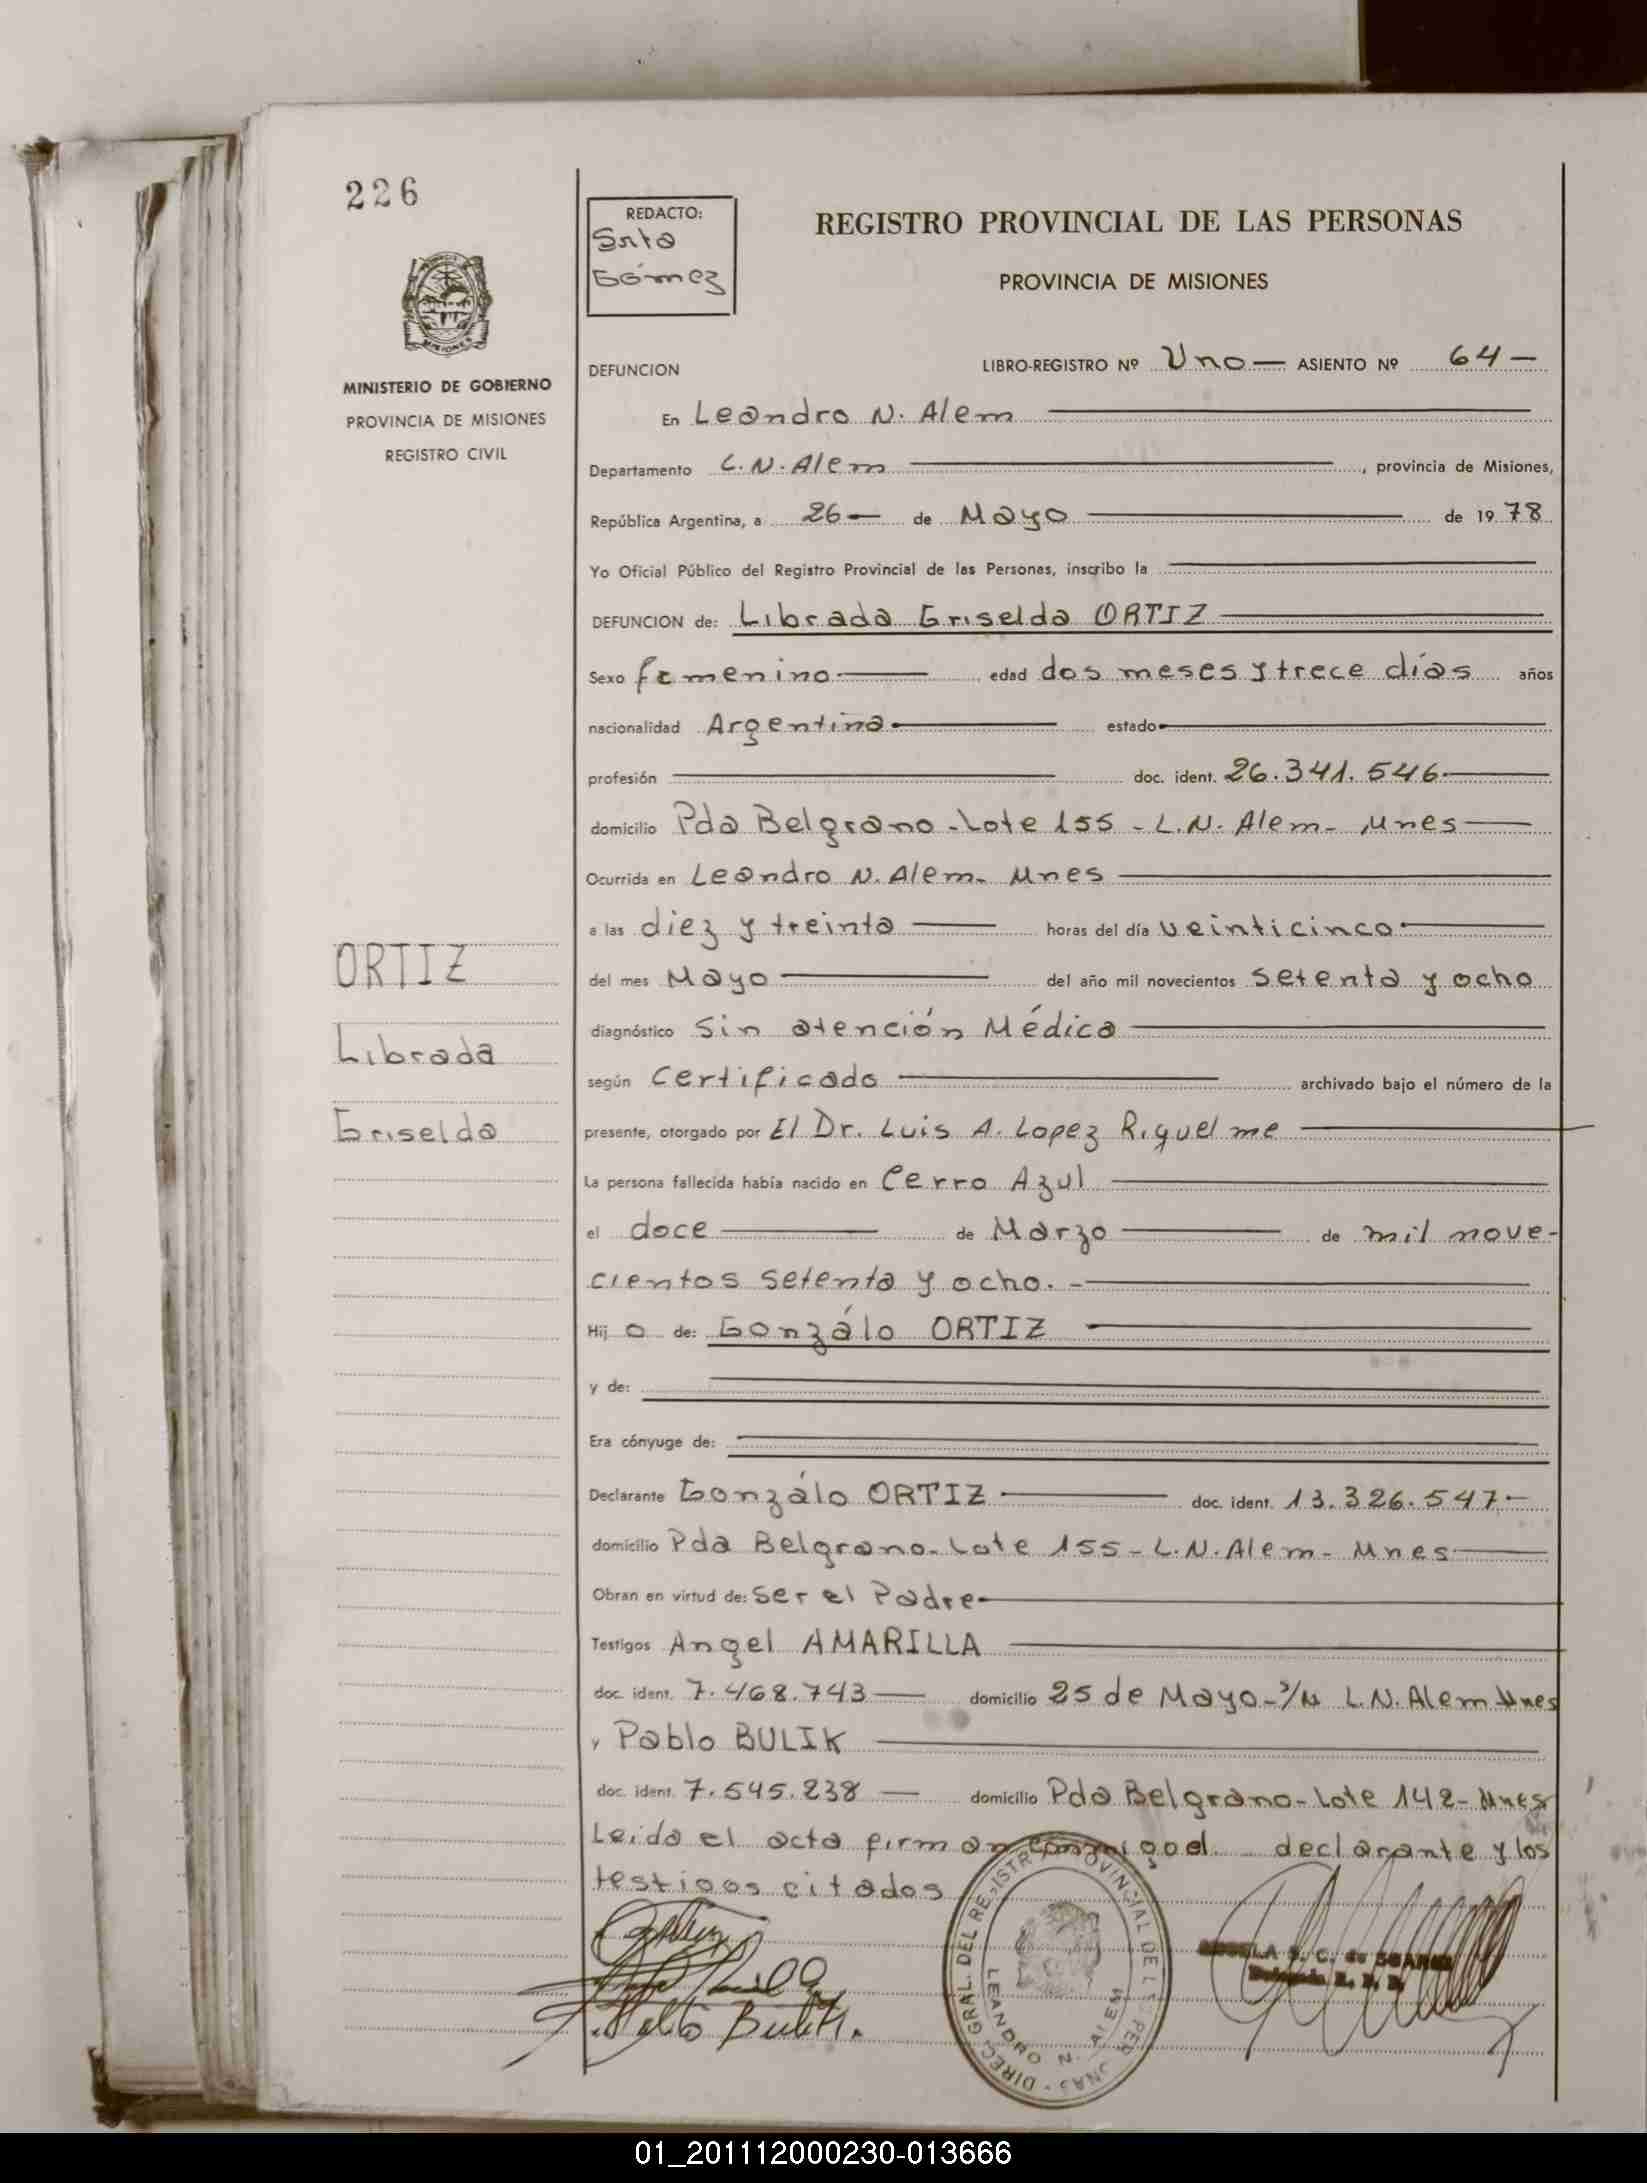 226
REDACTO:
Srta
Gómez
REGISTRO PROVINCIAL DE LAS PERSONAS
PROVINCIA DE MISIONES
MISIONES
MINISTERIO DE GOBIERNO
PROVINCIA DE MISIONES
REGISTRO CIVIL
DEFUNCION LIBRO-REGISTRO Nº Uno — ASIENTO Nº 64 —
En Leandro N. Alem
Departamento L.N. Alem , provincia de Misiones,
República Argentina, a 26 — de Mayo de 1978
Yo Oficial Público del Registro Provincial de las Personas, inscribo la
DEFUNCION de: Librada Griselda ORTIZ
Sexo femenino edad dos meses y trece días años
nacionalidad Argentina estado
profesión doc. ident. 26.341.546
domicilio Pda Belgrano - Lote 155 - L.N. Alem - Mnes
Ocurrida en Leandro N. Alem - Mnes
a las diez y treinta horas del día veinticinco
del mes Mayo del año mil novecientos setenta y ocho
diagnóstico Sin atención Médica
según Certificado archivado bajo el número de la
presente, otorgado por El Dr. Luis A. Lopez Riquelme
La persona fallecida había nacido en Cerro Azul
el doce de Marzo de mil nove-
cientos setenta y ocho. -
Hij o de: Gonzálo ORTIZ
y de:
Era cónyuge de:
Declarante Gonzálo ORTIZ doc. ident. 13.326.547 -
domicilio Pda Belgrano - Lote 155 - L.N. Alem - Mnes
Obran en virtud de: Ser el Padre
Testigos Angel AMARILLA
doc. ident. 7.468.743 — domicilio 25 de Mayo - S/N L.N. Alem Mnes
y Pablo BULIK
doc. ident. 7.545.238 — domicilio Pda Belgrano - Lote 142 - Mnes
Leida el acta firman conmigo el declarante y los
testigos citados
ORTIZ
Librada
Griselda
DIREC. GRAL. DEL REGISTRO PROVINCIAL DE LAS PERSONAS
LEANDRO N. ALEM
01_201112000230-013666